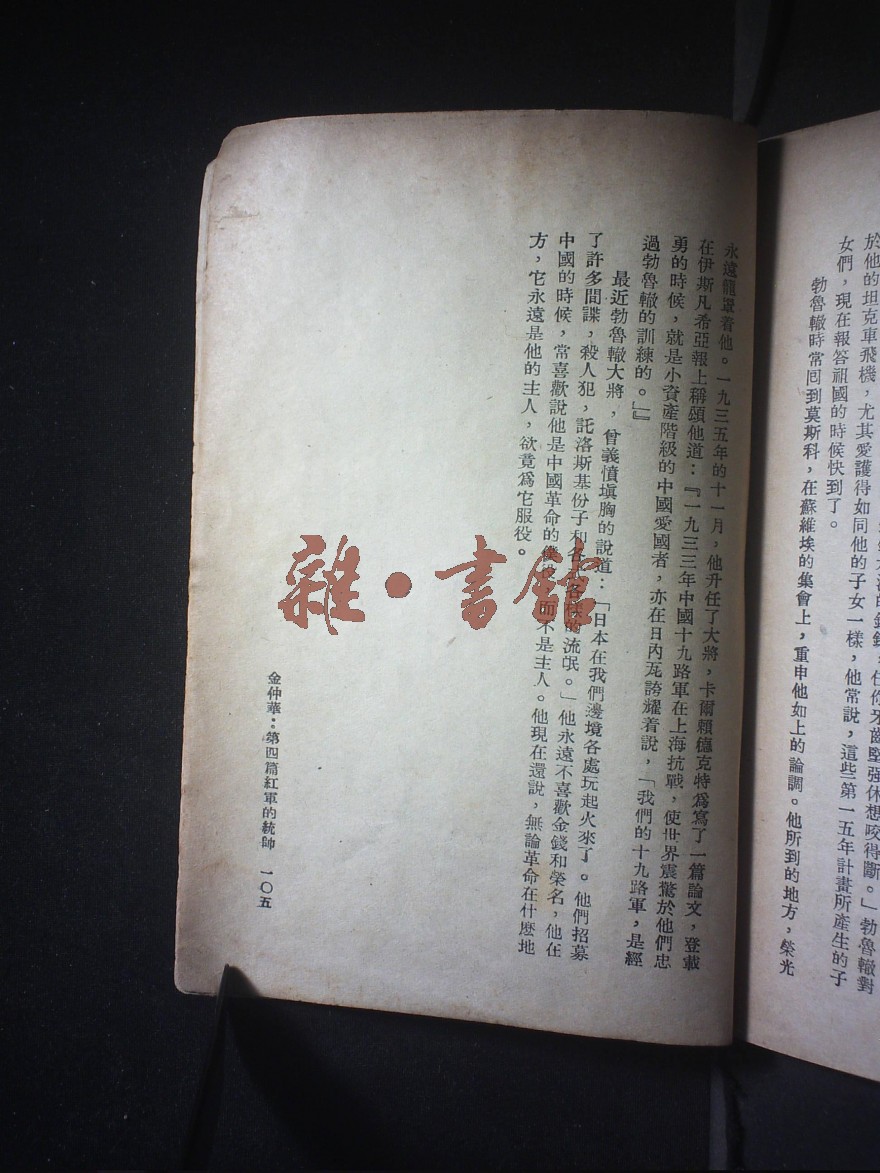 於他的坦克車飛機，尤其愛護得如同他的子女一樣，他常說，這些第一五年計畫所產生的子
女們，現在報答祖國的時候快到了。
勃魯轍時常囘到莫斯科，在蘇維埃的集會上，重申他如上的論調。他所到的地方，榮光
永遠籠罩着他。一九三五年的十一月，他升任了大將，卡爾賴德克特爲寫了一篇論文，登載
在伊斯凡希亞報上稱頌他道：『一九三三年中國十九路軍在上海抗戰，使世界震驚於他們忠
勇的時候，就是小資產階級的中國愛國者，亦在日內瓦誇耀着說，「我們的十九路軍，是經
過勃魯轍的訓練的。」』
最近勃魯轍大將，曾義憤塡胸的說道：「日本在我們邊境各處玩起火來了。他們招募
了許多間諜，殺人犯，託洛斯基份子和各 各樣的流氓。」他永遠不喜歡金錢和榮名，他在
中國的時候，常喜歡說他是中國革命的僕 而不是主人。他現在還說，無論革命在什麼地
方，它永遠是他的主人，欲竟爲它服役。
金仲華：第四篇紅軍的統帥 一〇五
雜·書館